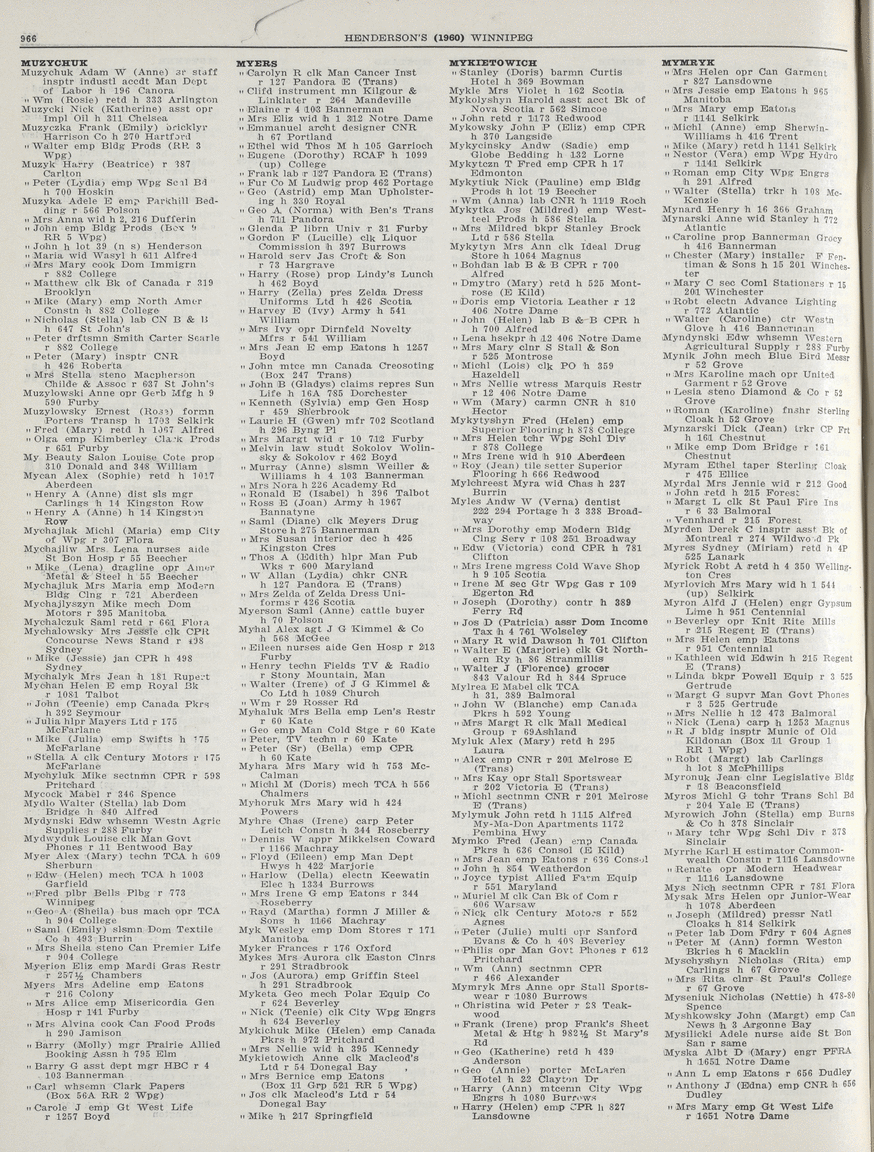 966
HENDERSON'S (1960) WINNIPEG
MUZYCHUK
Muzychuk Adam W (Anne) sr staff
insptr industl accdt Man Dept
of Labor h 196 Canora
" Wm (Rosie) retd h 333 Arlington
Muzycki Nick (Katherine) asst opr
Impl Oil h 311 Chelsea
Muzyczka Frank (Emily) bricklyr
Harrison Co h 270 Hartford
" Walter emp Bldg Prods (RR 3
Wpg)
Muzyk Harry (Beatrice) r 387
Carlton
" Peter (Lydia) emp Wpg Schl Bd
h 700 Hoskin
Muzyka Adele E emp Parkhill Bed-
ding r 566 Polson
" Mrs Anna wid h 2, 216 Dufferin
" John emp Bldg Prods (Box 9
RR 5 Wpg)
" John h lot 39 (n s) Henderson
" Maria wid Wasyl h 611 Alfred
" Mrs Mary cook Dom Immigrn
r 882 College
" Matthew clk Bk of Canada r 319
Brooklyn
" Mike (Mary) emp North Amer
Constn h 882 College
" Nicholas (Stella) lab CN B & B
h 647 St John's
" Peter drftsmn Smith Carter Searle
r 882 College
" Peter (Mary) insptr CNR
h 426 Roberta
" Mrs Stella steno Macpherson
Childe & Assoc r 637 St John's
Muzylowski Anne opr Gerb Mfg h 9
590 Furby
Muzylowsky Ernest (Rose) formn
Porters Transp h 1703 Selkirk
" Fred (Mary) retd h 1067 Alfred
" Olga emp Kimberley Clark Prods
r 651 Furby
My Beauty Salon Louise Cote prop
310 Donald and 348 William
Mycan Alex (Sophie) retd h 1017
Aberdeen
" Henry A (Anne) dist sls mgr
Carlings h 14 Kingston Row
" Henry A (Anne) h 14 Kingston
Row
Mychajlak Michl (Maria) emp City
of Wpg r 307 Flora
Mychajliw Mrs Lena nurses aide
St Bon Hosp r 55 Beecher
" Mike (Lena) dragline opr Amer
Metal & Steel h 55 Beecher
Mychajluk Mrs Maria emp Modern
Bldg Clng r 721 Aberdeen
Mychajlyszyn Mike mech Dom
Motors r 395 Manitoba
Mychalczuk Saml retd r 661 Flora
Mychalowsky Mrs Jessie clk CPR
Concourse News Stand r 498
Sydney
" Mike (Jessie) jan CPR h 498
Sydney
Mychalyk Mrs Jean h 181 Rupert
Mychan Helen E emp Royal Bk
r 1081 Talbot
" John (Teenie) emp Canada Pkrs
h 392 Seymour
" Julia hlpr Mayers Ltd r 175
McFarlane
" Mike (Julia) emp Swifts h 175
McFarlane
" Stella A clk Century Motors r 175
McFarlane
Mychyluk Mike sectnmn CPR r 598
Pritchard
Mycock Mabel r 346 Spence
Mydlo Walter (Stella) lab Dom
Bridge h 840 Alfred
Mydynski Edw whsemn Westn Agric
Supplies r 288 Furby
Mydwyduk Louise clk Man Govt
Phones r 11 Bentwood Bay
Myer Alex (Mary) techn TCA h 609
Sherburn
" Edw (Helen) mech TCA h 1003
Garfield
" Fred plbr Bells Plbg r 773
Winnipeg
" Geo A (Sheila) bus mach opr TCA
h 904 College
" Saml (Emily) slsmn Dom Textile
Co h 493 Burrin
" Mrs Sheila steno Can Premier Life
r 904 College
Myerion Eliz emp Mardi Gras Restr
r 257½ Chambers
Myers Mrs Adeline emp Eatons
r 216 Colony
" Mrs Alice emp Misericordia Gen
Hosp r 141 Furby
" Mrs Alvina cook Can Food Prods
h 290 Jamison
" Barry (Molly) mgr Prairie Allied
Booking Assn h 795 Elm
" Barry G asst dept mgr HBC r 4
103 Bannerman
" Carl whsemn Clark Papers
(Box 56A RR 2 Wpg)
" Carole J emp Gt West Life
r 1257 Boyd
MYERS
" Carolyn R clk Man Cancer Inst
r 127 Pandora E (Trans)
" Clifd instrument mn Kilgour &
Linklater r 264 Mandeville
" Elaine r 4 103 Bannerman
" Mrs Eliz wid h 1 312 Notre Dame
" Emmanuel archt designer CNR
h 67 Portland
" Ethel wid Thos M h 105 Garrioch
" Eugene (Dorothy) RCAF h 1099
(up) College
" Frank lab r 127 Pandora E (Trans)
" Fur Co M Ludwig prop 462 Portage
" Geo (Astrid) emp Man Upholster-
ing h 330 Royal
" Geo A (Norma) with Ben's Trans
h 711 Pandora
" Glenda P librn Univ r 31 Furby
" Gordon F (Lucille) clk Liquor
Commission h 397 Burrows
" Harold serv Jas Croft & Son
r 73 Hargrave
" Harry (Rose) prop Lindy's Lunch
h 462 Boyd
" Harry (Zella) pres Zelda Dress
Uniforms Ltd h 426 Scotia
" Harvey E (Ivy) Army h 541
William
" Mrs Ivy opr Dirnfeld Novelty
Mfrs r 541 William
" Mrs Jean E emp Eatons h 1257
Boyd
" John mtce mn Canada Creosoting
(Box 247 Trans)
" John B (Gladys) claims repres Sun
Life h 16A 785 Dorchester
" Kenneth (Sylvia) emp Gen Hosp
r 459 Sherbrook
" Laurie H (Gwen) mfr 702 Scotland
h 296 Byng Pl
" Mrs Margt wid r 10 712 Furby
" Melvin law studt Sokolov Wolin-
sky & Sokolov r 462 Boyd
" Murray (Anne) slsmn Weiller &
Williams h 4 103 Bannerman
" Mrs Nora h 226 Academy Rd
" Ronald E (Isabel) h 396 Talbot
" Ross E (Joan) Army h 1967
Bannatyne
" Saml (Diane) clk Meyers Drug
Store h 275 Bannerman
" Mrs Susan interior dec h 425
Kingston Cres
" Thos A (Edith) hlpr Man Pub
Wks r 600 Maryland
" W Allan (Lydia) chkr CNR
h 127 Pandora E (Trans)
" Mrs Zelda of Zelda Dress Uni-
forms r 426 Scotia
Myerson Saml (Anne) cattle buyer
h 70 Polson
Myhal Alex agt J G Kimmel & Co
h 568 McGee
" Eileen nurses aide Gen Hosp r 213
Furby
" Henry techn Fields TV & Radio
r Stony Mountain, Man
" Walter (Irene) of J G Kimmel &
Co Ltd h 1089 Church
" Wm r 29 Rosser Rd
Myhaluk Mrs Bella emp Len's Restr
r 60 Kate
" Geo emp Man Cold Stge r 60 Kate
" Peter, TV techn r 60 Kate
" Peter (Sr) (Bella) emp CPR
h 60 Kate
Myhara Mrs Mary wid h 753 Mc-
Calman
" Michl M (Doris) mech TCA h 556
Chalmers
Myhoruk Mrs Mary wid h 424
Powers
Myhre Chas (Irene) carp Peter
Leitch Constn h 344 Roseberry
" Dennis W appr Mikkelsen Coward
r 1166 Machray
" Floyd (Eileen) emp Man Dept
Hwys h 422 Marjorie
" Harlow (Della) electn Keewatin
Elec h 1334 Burrows
" Mrs Irene G emp Eatons r 344
Roseberry
" Rayd (Martha) formn J Miller &
Sons h 1166 Machray
Myk Wesley emp Dom Stores r 171
Manitoba
Myker Frances r 176 Oxford
Mykes Mrs Aurola clk Easton Clnrs
r 291 Stradbrook
" Jos (Aurora) emp Griffin Steel
h 291 Stradbrook
Myketa Geo mech Polar Equip Co
r 624 Beverley
" Nick (Teenie) clk City Wpg Engrs
h 624 Beverley
Mykichuk Mike (Helen) emp Canada
Pkrs h 972 Pritchard
" Mrs Nellie wid h 395 Kennedy
Mykietowich Anne clk Macleod's
Ltd r 54 Donegal Bay
" Mrs Bernice emp Eatons
(Box 11 Grp 521 RR 5 Wpg)
" Jos clk Macleod's Ltd r 54
Donegal Bay
" Mike h 217 Springfield
MYKIETOWICH
" Stanley (Doris) barmn Curtis
Hotel h 369 Bowman
Mykle Mrs Violet h 162 Scotia
Mykolyshyn Harold asst acct Bk of
Nova Scotia r 562 Simcoe
" John retd r 1173 Redwood
Mykowsky John P (Eliz) emp CPR
h 370 Langside
Mykycinsky Andw (Sadie) emp
Globe Bedding h 132 Lorne
Mykytczn T Fred emp CPR h 17
Edmonton
Mykytiuk Nick (Pauline) emp Bldg
Prods h lot 19 Beecher
" Wm (Anna) lab CNR h 1119 Roch
Mykytka Jos (Mildred) emp West-
teel Prods h 586 Stella
" Mrs Mildred bkpr Stanley Brock
Ltd r 586 Stella
Mykytyn Mrs Ann clk Ideal Drug
Store h 1064 Magnus
" Bohdan lab B & B CPR r 700
Alfred
" Dmytro (Mary) retd h 525 Mont-
rose (E Kild)
" Doris emp Victoria Leather r 12
406 Notre Dame
" John (Helen) lab B & B CPR h
h 700 Alfred
" Lena hsekpr h 12 406 Notre Dame
" Mrs Mary clnr S Stall & Son
r 525 Montrose
" Michl (Lois) clk PO h 359
Hazeldell
" Mrs Nellie wtress Marquis Restr
r 12 406 Notre Dame
" Wm (Mary) carmn CNR h 810
Hector
Mykytyshyn Fred (Helen) emp
Superior Flooring h 878 College
" Mrs Helen tchr Wpg Schl Div
r 878 College
" Mrs Irene wid h 910 Aberdeen
" Roy (Jean) tile setter Superior
Flooring h 666 Redwood
Mylchreest Myra wid Chas h 237
Burrin
Myles Andw W (Verna) dentist
222 294 Portage h 3 338 Broad-
way
" Mrs Dorothy emp Modern Bldg
Clng Serv r 108 251 Broadway
" Edw (Victoria) cond CPR h 781
Clifton
" Mrs Irene mgress Cold Wave Shop
h 9 105 Scotia
" Irene M sec Gtr Wpg Gas r 109
Egerton Rd
" Joseph (Dorothy) contr h 389
Ferry Rd
" Jos D (Patricia) assr Dom Income
Tax h 4 761 Wolseley
" Mary R wid Dawson h 701 Clifton
" Walter E (Marjorie) clk Gt North-
ern Ry h 86 Stranmillis
" Walter J (Florence) grocer
843 Valour Rd h 844 Spruce
Mylrea E Mabel clk TCA
h 31, 389 Balmoral
" John W (Blanche) emp Canada
Pkrs h 592 Young
" Mrs Margt R clk Mall Medical
Group r 69Ashland
Myluk Alex (Mary) retd h 295
Laura
" Alex emp CNR r 201 Melrose E
(Trans)
" Mrs Kay opr Stall Sportswear
r 202 Victoria E (Trans)
" Michl sectnmn CNR r 201 Melrose
E (Trans)
Mylymuk John retd h 1115 Alfred
My-Ma-Don Apartments 1172
Pembina Hwy
Mymko Fred (Jean) emp Canada
Pkrs h 636 Consol (E Kild)
" Mrs Jean emp Eatons r 636 Consol
" John h 854 Weatherdon
" Joyce typist Allied Farm Equip
r 551 Maryland
" Muriel M clk Can Bk of Com r
606 Warsaw
" Nick clk Century Motors r 552
Agnes
" Peter (Julie) multi opr Sanford
Evans & Co h 408 Beverley
" Philis opr Man Govt Phones r 612
Pritchard
" Wm (Ann) sectnmn CPR
r 466 Alexander
Mymryk Mrs Anne opr Stall Sports-
wear r 1080 Burrows
" Christina wid Peter r 23 Teak-
wood
" Frank (Irene) prop Frank's Sheet
Metal & Htg h 982½ St Mary's
Rd
" Geo (Katherine) retd h 439
Anderson
" Geo (Annie) porter McLaren
Hotel h 22 Clayton Dr
" Harry (Ann) mtcenn City Wpg
Engrs h 1080 Burrows
" Harry (Helen) emp CPR h 827
Lansdowne
MYMRYK
" Mrs Helen opr Can Garment
r 827 Lansdowne
" Mrs Jessie emp Eatons h 965
Manitoba
" Mrs Mary emp Eatons
r 1141 Selkirk
" Michl (Anne) emp Sherwin-
Williams h 416 Trent
" Mike (Mary) retd h 1141 Selkirk
" Nestor (Vera) emp Wpg Hydro
r 1141 Selkirk
" Roman emp City Wpg Engrs
h 291 Alfred
" Walter (Stella) trkr h 108 Mc-
Kenzie
Mynard Henry h 16 366 Graham
Mynarski Anne wid Stanley h 772
Atlantic
" Caroline prop Bannerman Grocy
h 416 Bannerman
" Chester (Mary) installer F Fen-
timan & Sons h 15 201 Winches-
ter
" Mary C sec Coml Stationers r 15
201 Winchester
" Robt electn Advance Lighting
r 772 Atlantic
" Walter (Caroline) ctr Westn
Glove h 416 Bannerman
Myndynski Edw whsemn Western
Agricultural Supply r 288 Furby
Mynik John mech Blue Bird Messr
r 52 Grove
" Mrs Karoline mach opr United
Garment r 52 Grove
" Lesia steno Diamond & Co r 52
Grove
" Roman (Karoline) fnshr Sterling
Cloak h 52 Grove
Mynzarski Dick (Jean) trkr CP Frt
h 161 Chestnut
" Mike emp Dom Bridge r 161
Chestnut
Myram Ethel taper Sterling Cloak
r 475 Ellice
Myrdal Mrs Jennie wid r 212 Good
" John retd h 215 Forest
" Margt L clk St Paul Fire Ins
r 6 33 Balmoral
" Vennhard r 215 Forest
Myrden Derek C insptr asst Bk of
Montreal r 274 Wildwood Pk
Myres Sydney (Miriam) retd h 4P
525 Lanark
Myrick Robt A retd h 4 350 Welling-
ton Cres
Myrlovich Mrs Mary wid h 1 544
(up) Selkirk
Myron Alfd J (Helen) engr Gypsum
Lime h 951 Centennial
" Beverley opr Knit Rite Mills
r 215 Regent E (Trans)
" Mrs Helen emp Eatons
r 951 Centennial
" Kathleen wid Edwin h 215 Regent
E (Trans)
" Linda bkpr Powell Equip r 3 525
Gertrude
" Margt G supvr Man Govt Phones
r 3 525 Gertrude
" Mrs Nellie h 12 473 Balmoral
" Nick (Lena) carp h 1253 Magnus
" R J bldg insptr Munic of Old
Kildonan (Box 11 Group 1
RR 1 Wpg)
" Robt (Margt) lab Carlings
h lot 8 McPhillips
Myronuk Jean clnr Legislative Bldg
r 18 Beaconsfield
Myros Michl G tchr Trans Schl Bd
r 204 Yale E (Trans)
Myrowich John (Stella) emp Burns
& Co h 378 Sinclair
" Mary tchr Wpg Schl Div r 378
Sinclair
Myrrhe Karl H estimator Common-
wealth Constn r 1116 Lansdowne
" Renate opr Modern Headwear
r 1116 Lansdowne
Mys Nich sectnmn CPR r 781 Flora
Mysak Mrs Helen opr Junior-Wear
h 1078 Aberdeen
" Joseph (Mildred) pressr Natl
Cloaks h 814 Selkirk
" Peter lab Dom Fdry r 604 Agnes
" Peter M (Ann) formn Weston
Bkries h 6 Macklin
Myschyshyn Nicholas (Rita) emp
Carlings h 67 Grove
" Mrs Rita clnr St Paul's College
r 67 Grove
Myseniuk Nicholas (Nettie) h 478-80
Spence
Myshkowsky John (Margt) emp Can
News h 8 Argonne Bay
Mysilicki Adele nurse aide St Bon
San r same
Myska Albt D (Mary) engr PFRA
h 1651 Notre Dame
" Ann L emp Eatons r 656 Dudley
" Anthony J (Edna) emp CNR h 656
Dudley
" Mrs Mary emp Gt West Life
r 1651 Notre Dame